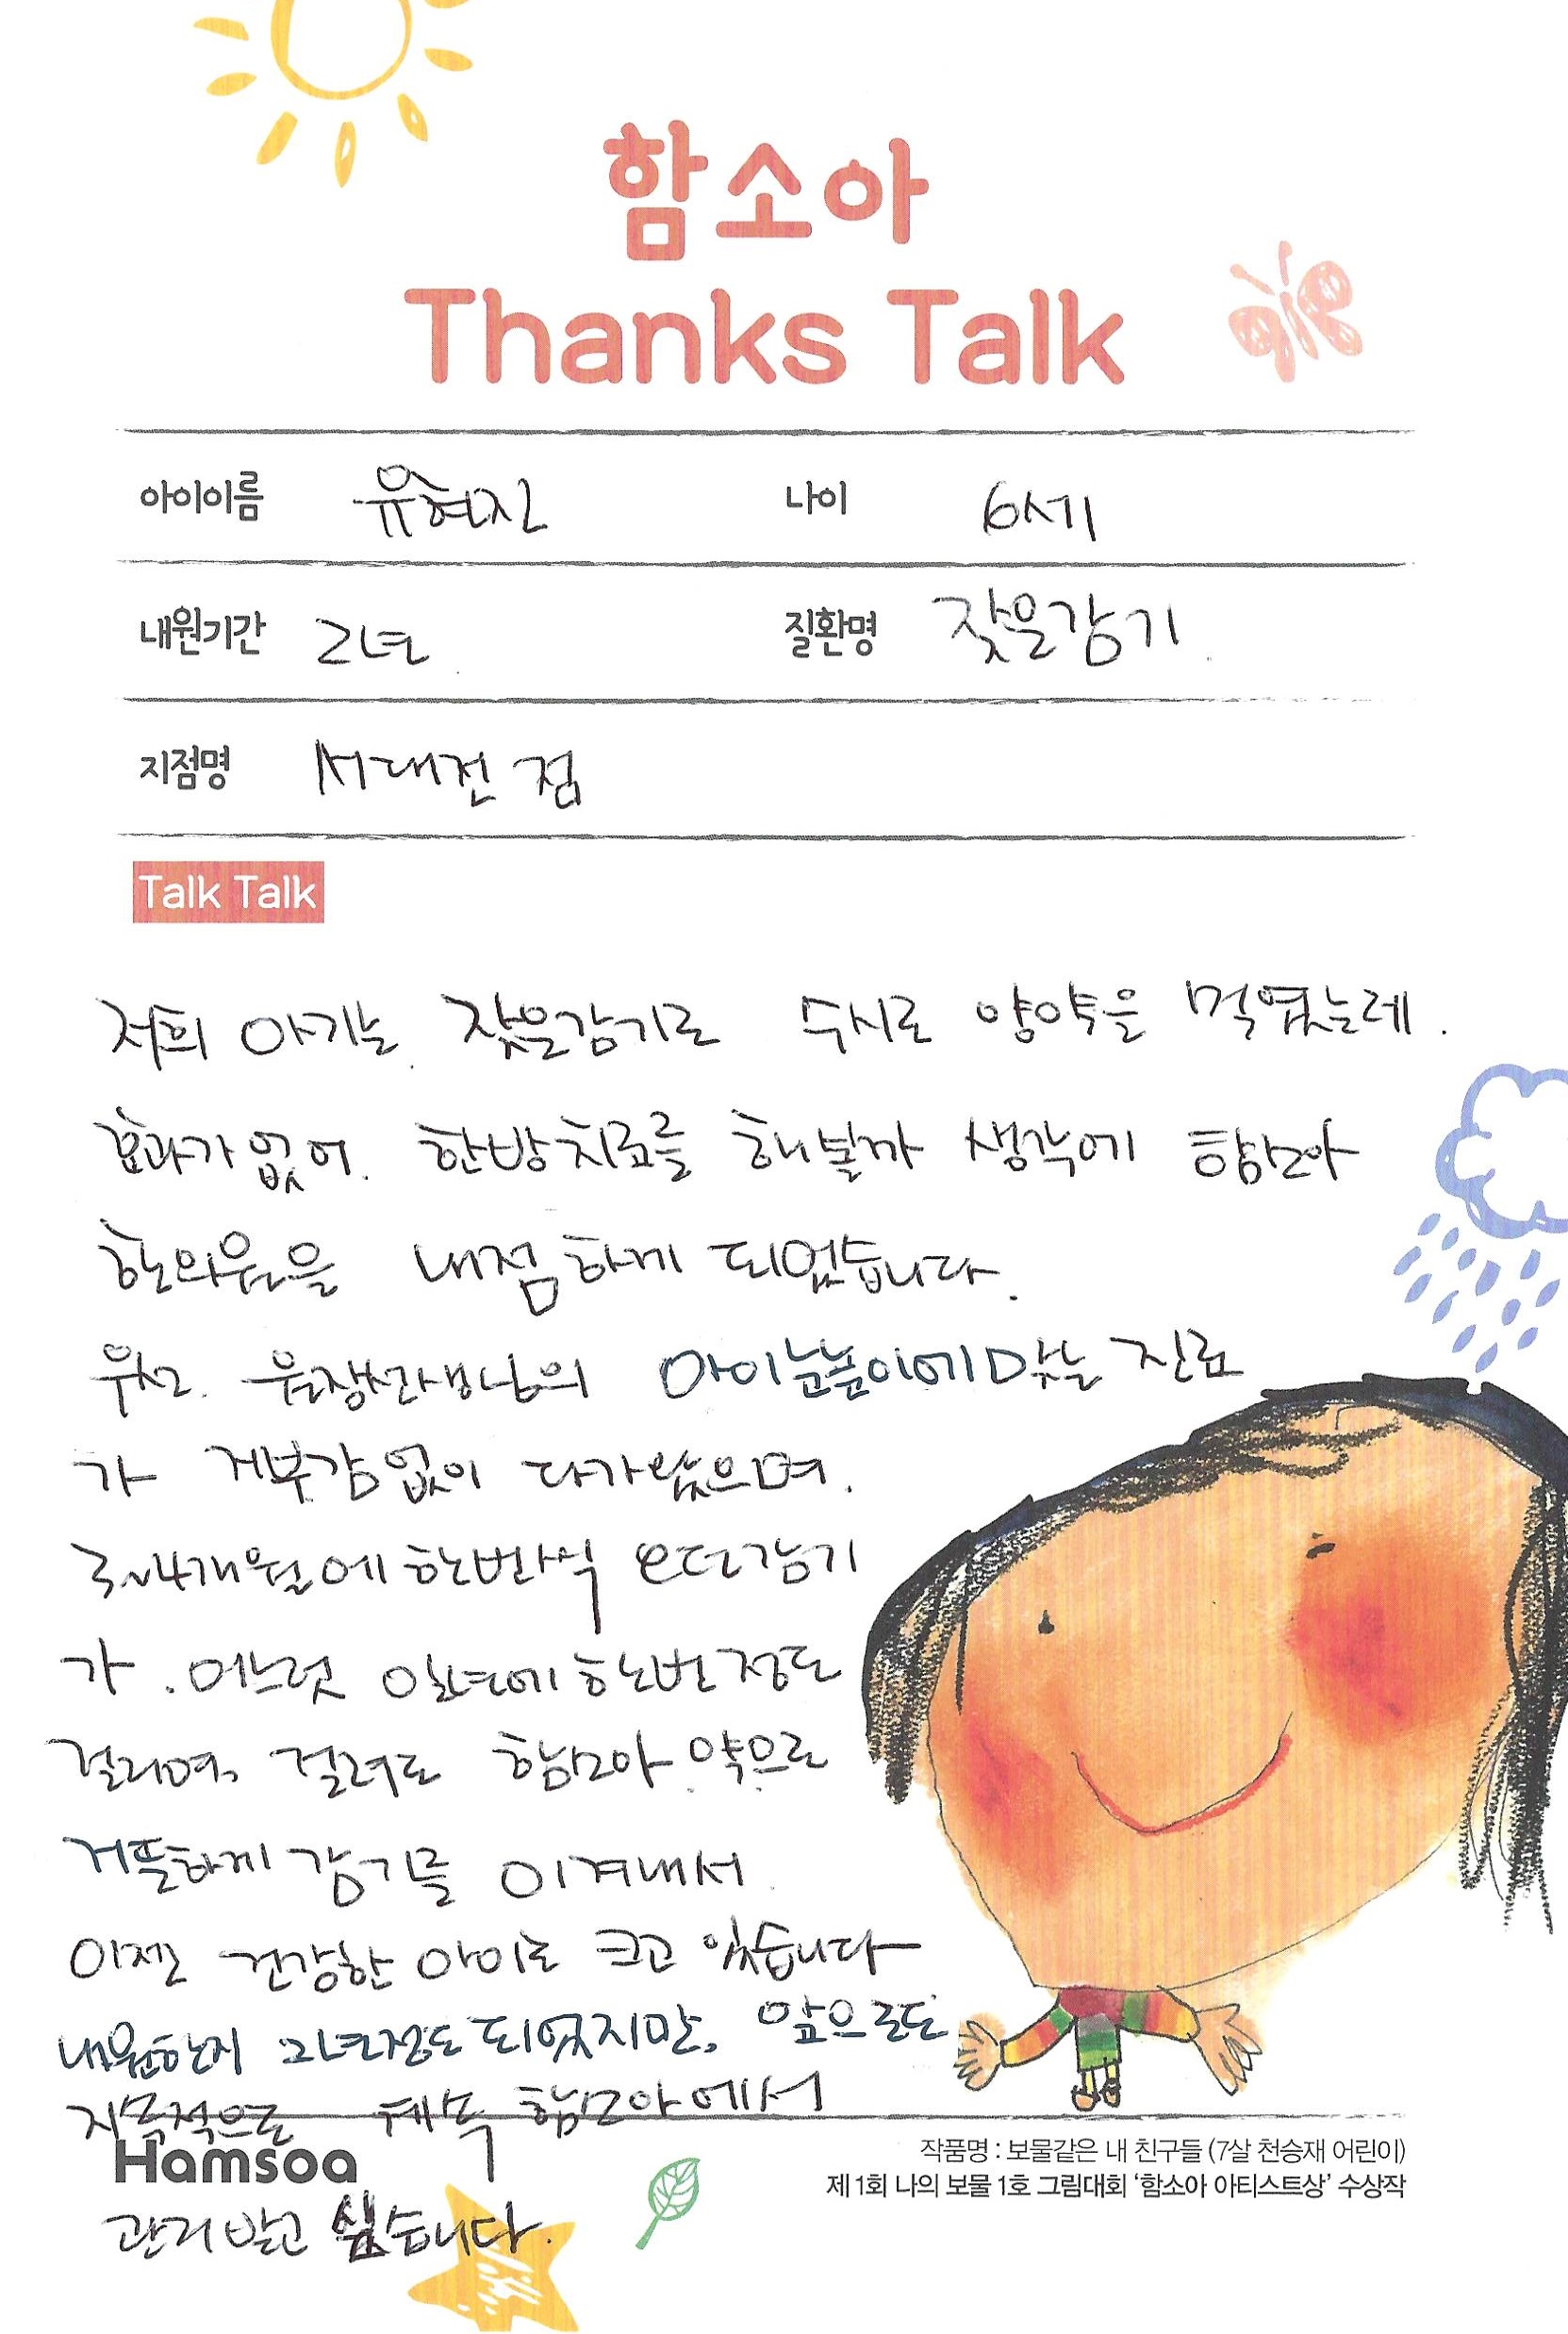 함소아
Thanks Talk
아이이름 유현진 나이 6세
내원기간 2년. 질환명 잦은감기.
지점명 서대전점
Talk Talk
저희 아기는. 잦은감기로 수시로 양약을 먹였는데.
효과가 없어. 한방치료를 해볼까 생각에 함소아
한의원을 내점하게 되었습니다.
우선. 원장선생님의 아이눈높이에맞는 진료
가 거부감없이 다가왔으며.
3~4개월에 한번씩 오던감기
가. 어느덧 일년에 한번정도
걸리며, 걸려도 함소아 약으로
거뜬하게 감기를 이겨내서.
이젠 건강한 아이로 크고 있습니다
내원한지 2년정도 되었지만, 앞으로도
지속적으로 계속 함소아에서
Hamsoa
관리받고 싶습니다.
작품명 : 보물같은 내 친구들 (7살 천승재 어린이)
제 1회 나의 보물 1호 그림대회 '함소아 아티스트상' 수상작